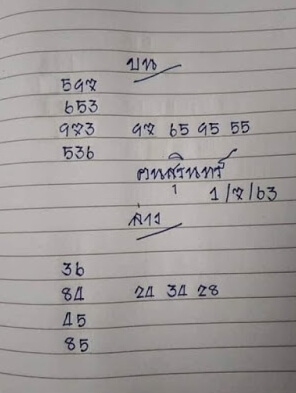 บน
597
653
973 97 65 95 55
536
คนสุรินทร์
1/7/63
ล่าง
36
84 24 34 28
45
85